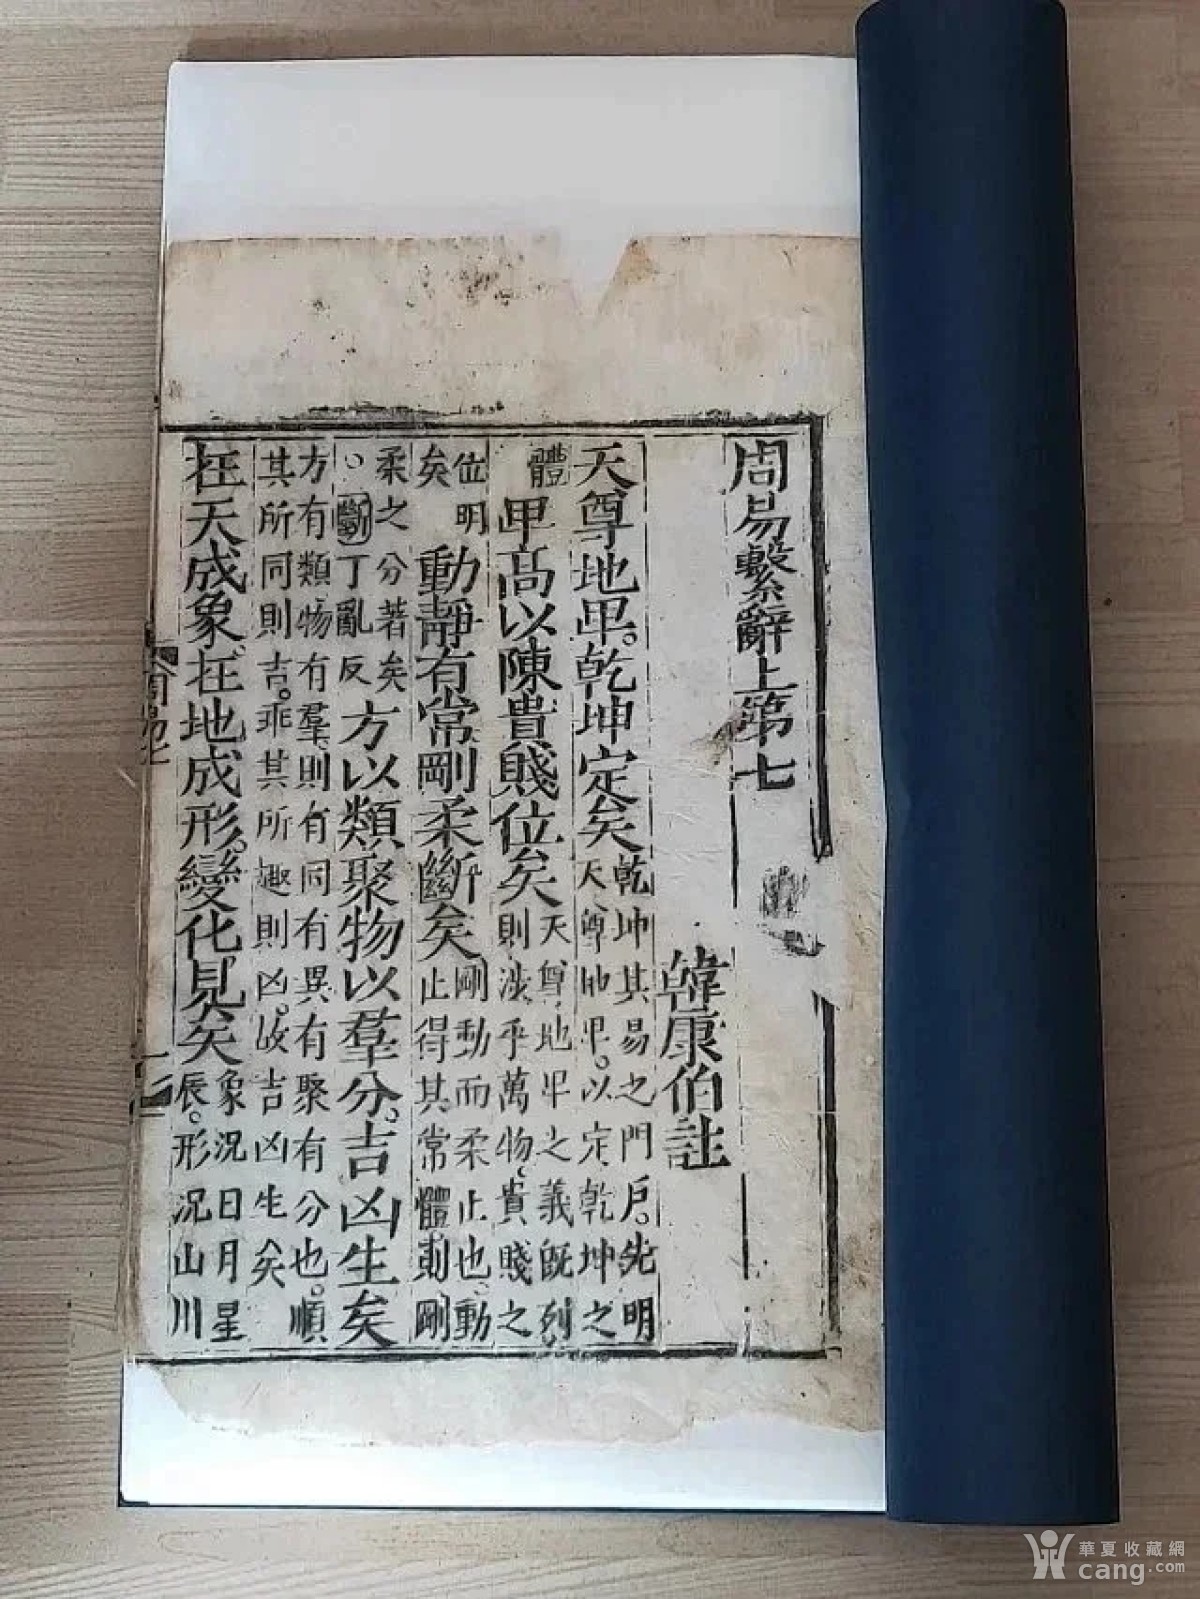 周易繫辭上第七
韓康伯註
天尊地卑。乾坤定矣乾坤其易之門戶。先明天尊地卑。以定乾坤之
體卑高以陳貴賤位矣天尊地卑之義旣列則涉乎萬物、貴賤之
位明矣動靜有常剛柔斷矣剛動而柔止也、動止得其常體則剛
柔之分著矣。斷丁亂反方以類聚物以羣分。吉凶生矣
方有類、物有羣、則有同有異、有聚有分也。順其所同則吉。乖其所趣則凶。故吉凶生矣
在天成象、在地成形。變化見矣象況日月星辰。形況山川
周易上
華夏收藏網
cang.com